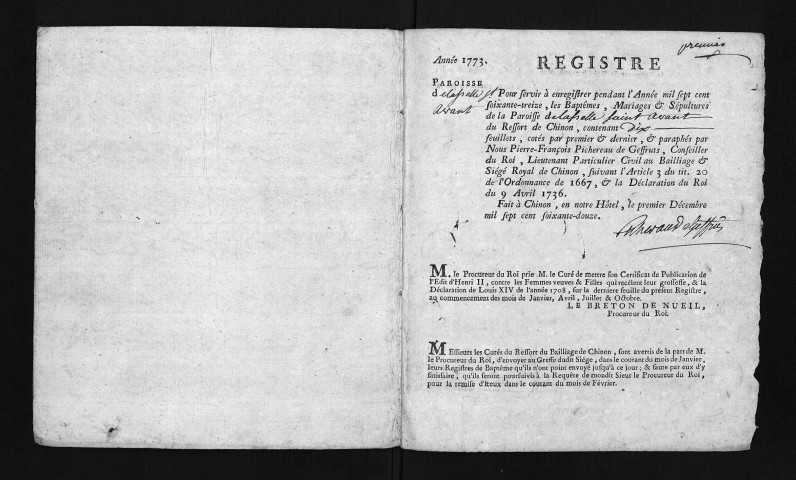 premier
Année 1773.
REGISTRE
PAROISSE
delaselle st
avant
Pour servir à enregistrer pendant l'Année mil sept cent
soixante-treize, les Baptêmes, Mariages & Sépultures
de la Paroisse delaselle saint avant
du Ressort de Chinon, contenant Dix
feuillets, cotés par premier & dernier, & paraphés par
Nous Pierre-François Pichereau de Geffruts, Conseiller
du Roi, Lieutenant Particulier Civil au Bailliage &
Siégé Royal de Chinon, suivant l'Article 3 du tit. 20
de l'Ordonnance de 1667, & la Déclaration du Roi
du 9 Avril 1736.
Fait à Chinon, en notre Hôtel, le premier Décembre
mil sept cent soixante-douze.
M. le Procureur du Roi prie M. le Curé de mettre son Certificat de Publication de
l'Edit d'Henri II, contre les Femmes veuves & Filles qui recélent leur grossesse, & la
Déclaration de Louis XIV de l'année 1708, sur la derniere feuille du présent Registre,
au commencement des mois de Janvier, Avril, Juillet & Octobre.
LE BRETON DE NUEIL,
Procureur du Roi.
MEssieurs les Curés du Ressort du Bailliage de Chinon, sont avertis de la part de M.
le Procureur du Roi, d'envoyer au Greffe dudit Siége, dans le courant du mois de Janvier,
leurs Registres de Baptême qu'ils n'ont point envoyé jusqu'à ce jour; & faute par eux d'y
satisfaire, qu'ils seront poursuivis à la Requête de mondit Sieur le Procureur du Roi,
pour la remise d'iceux dans le courant du mois de Février.